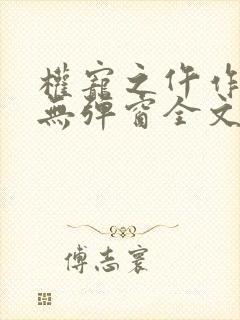 權寵之仵作
無彈窗全文
傅志寰